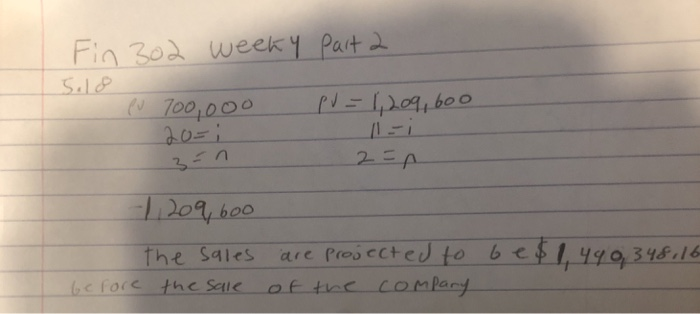 Fin 302 weekly Part 2
5.18
PV 700,000 PV = 1,209,600
20=i 11=i
3=n 2=n
-1,209,600
the sales are projected to be $1,490,348.16
before the sale of the company